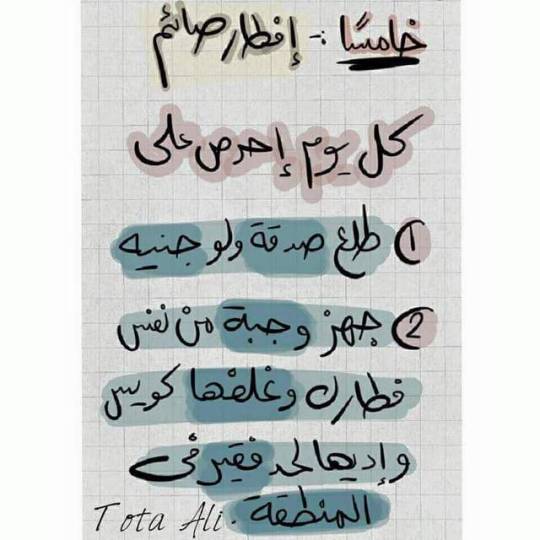 خامسًا :- إفطار صائم
كل يوم إحرص على
1 طلع صدقة ولو جنيه
2 جهز وجبة من نفس
فطارك وغلفها كويس
وإديها لحد فقير فى
المنطقة.
Tota Ali